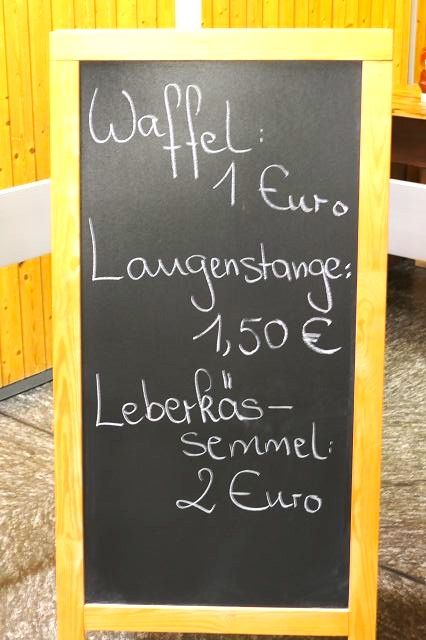 Waffel:
1 Euro
Laugenstange:
1,50 €
Leberkäs-
semmel:
2 Euro